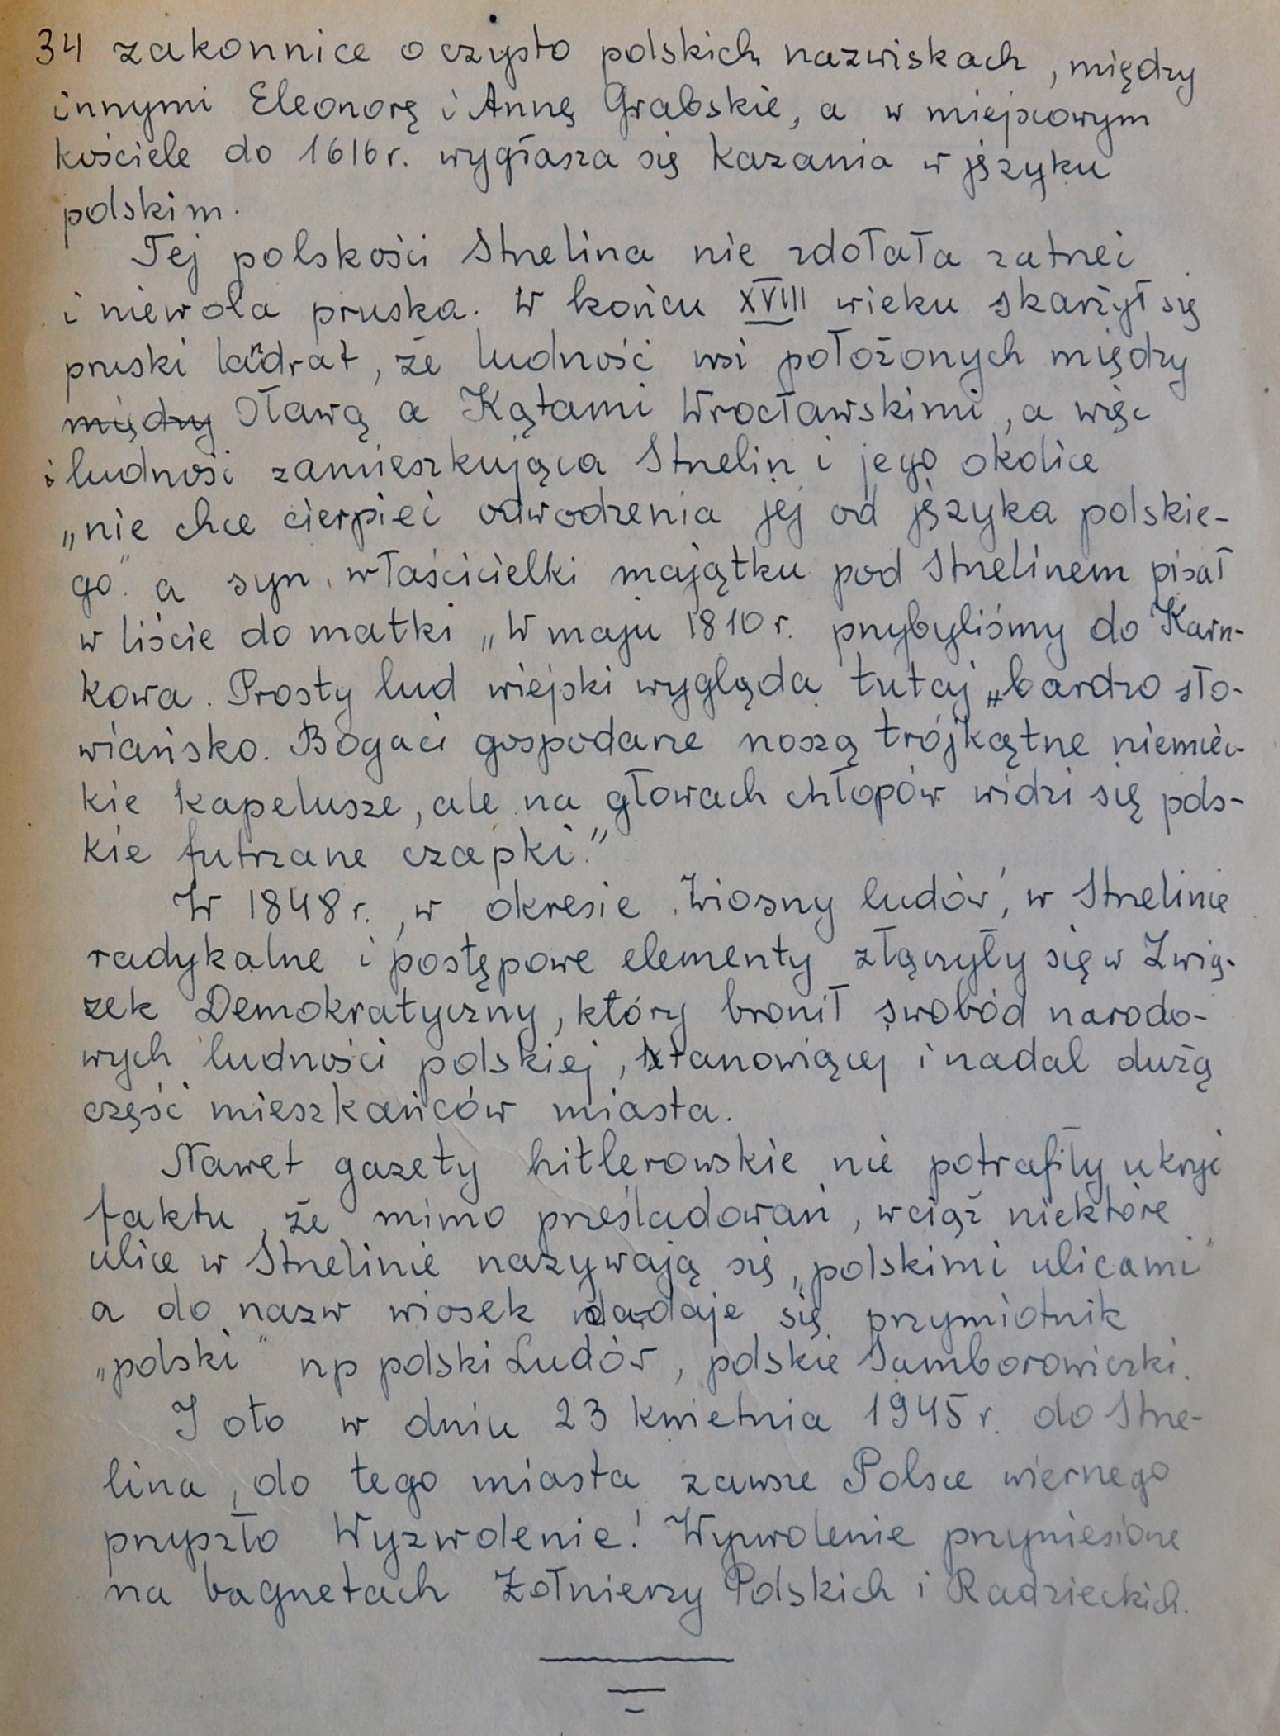 34 zakonnice o czysto polskich nazwiskach, między
innymi Eleonorę i Annę Grabskie, a w miejscowym
kościele do 1616 r. wygłasza się kazania w języku
polskim.
Tej polskości Strzelina nie zdołała zatrzeć
i niewola pruska. W końcu XVIII wieku skarżył się
pruski landrat, że ludność wsi położonych między
między Oławą a Kątami Wrocławskimi, a więc
i ludność zamieszkująca Strzelin i jego okolice
„nie chce cierpieć odwodzenia jej od języka polskie-
go" a syn właścicielki majątku pod Strzelinem pisał
w liście do matki „W maju 1810 r. przybyliśmy do Karn-
kowa. Prosty lud wiejski wygląda tutaj „bardzo sło-
wiańsko. Bogaci gospodarze noszą trójkątne niemiec-
kie kapelusze, ale na głowach chłopów widzi się pols-
kie futrzane czapki."
W 1848 r., w okresie „Wiosny ludów", w Strzelinie
radykalne i postępowe elementy złączyły się w Zwią-
zek Demokratyczny, który bronił swobód narodo-
wych ludności polskiej, stanowiącej i nadal dużą
część mieszkańców miasta.
Nawet gazety hitlerowskie nie potrafiły ukryć
faktu, że mimo prześladowań, wciąż niektóre
ulice w Strzelinie nazywają się „polskimi ulicami"
a do nazw wiosek dodaje się przymiotnik
„polski" np polski Ludów, polskie Samborowiczki.
I oto w dniu 23 kwietnia 1945 r. do Strze-
lina, do tego miasta zawsze Polsce wiernego
przyszło Wyzwolenie! Wyzwolenie przyniesione
na bagnetach Żołnierzy Polskich i Radzieckich.